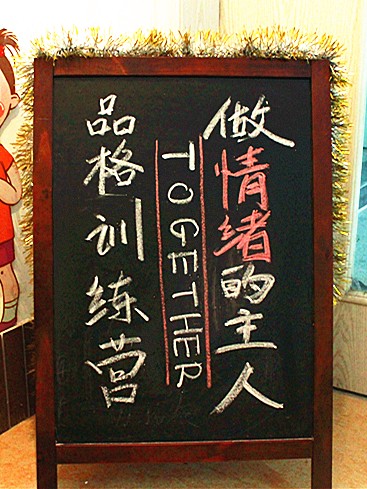 做情绪的主人
TOGETHER
品格训练营